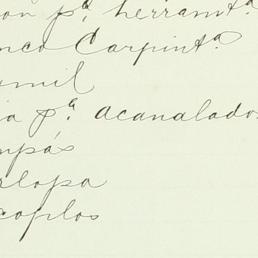 on pª herramtª
nco Carpintª
mil
ia pª acanalados
mpás
rlopa
coplos